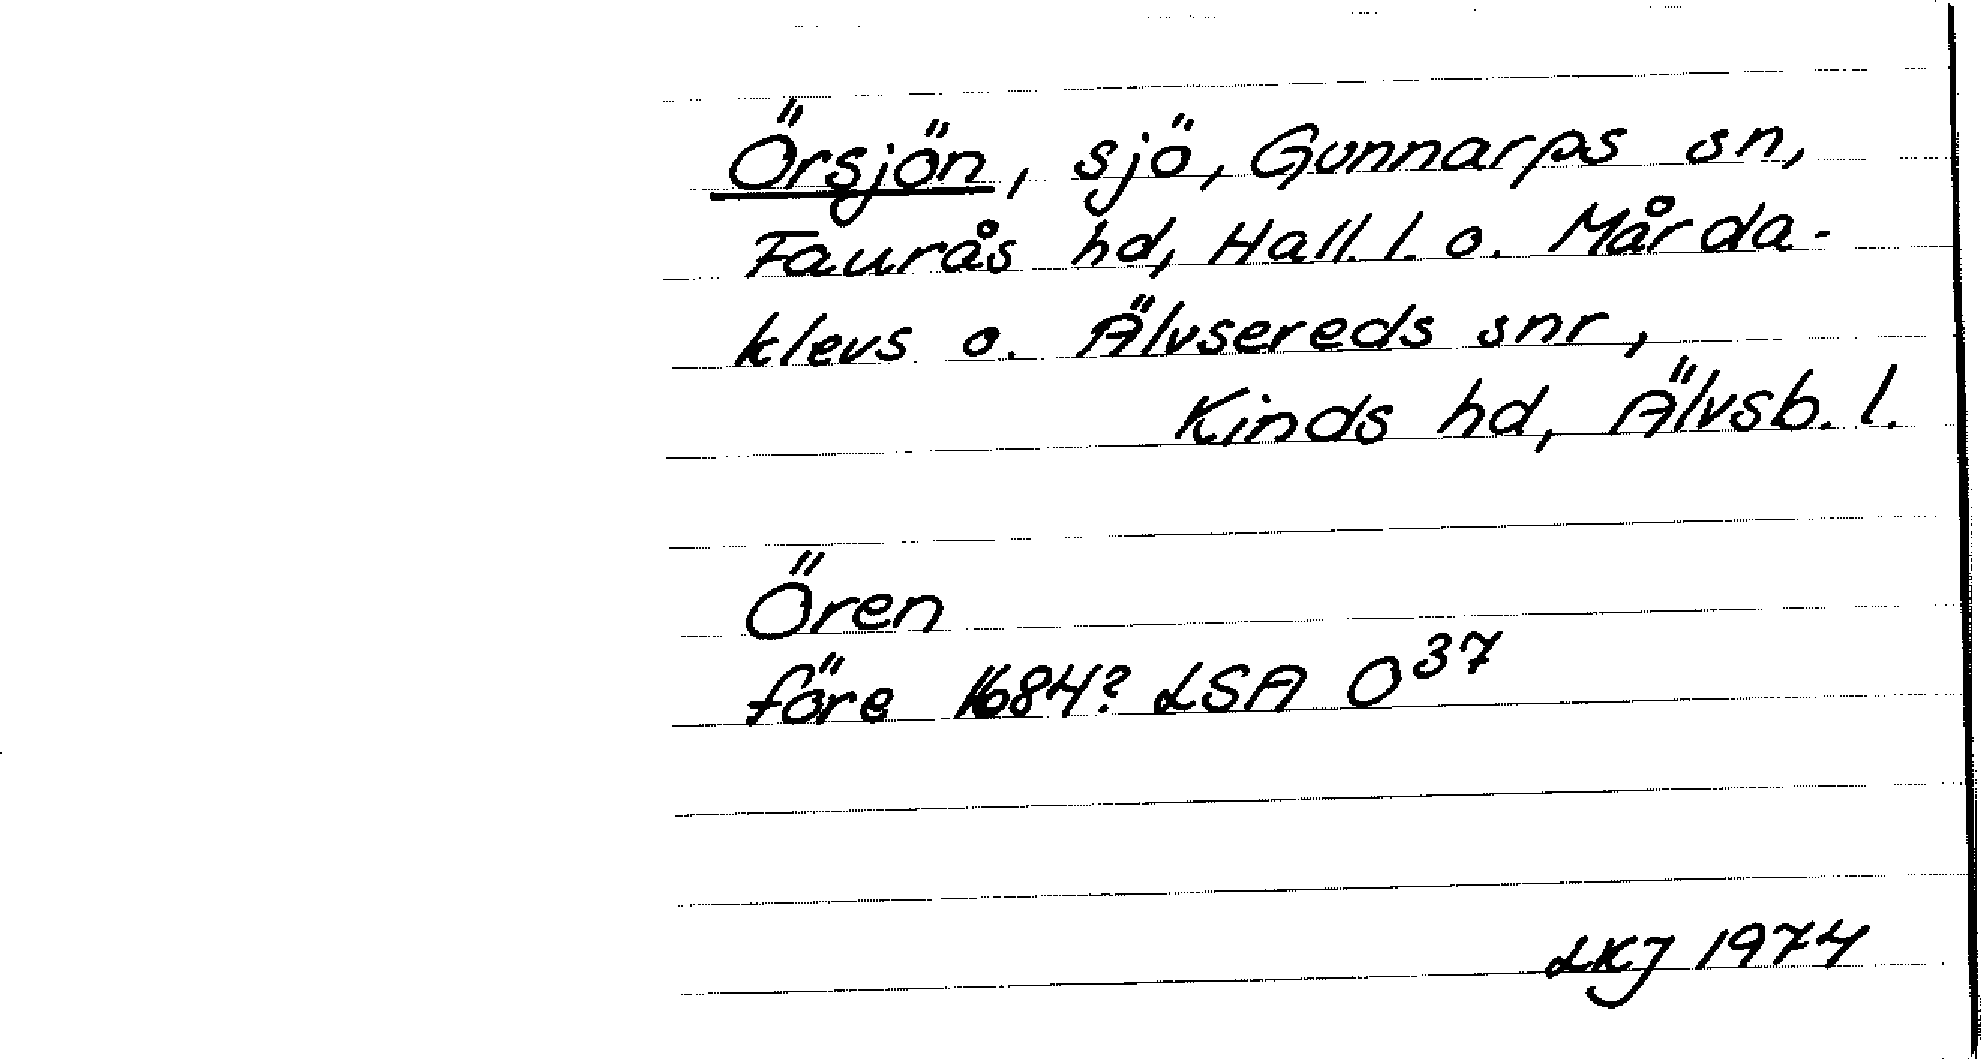 Örsjön, sjö, Gunnarps sn,
Faurås hd, Hall. l. o. Mårda-
klevs o. Älvsereds snr,
Kinds hd, Älvsb. l.
Ören
före 1684? LSA O37
LKJ 1974